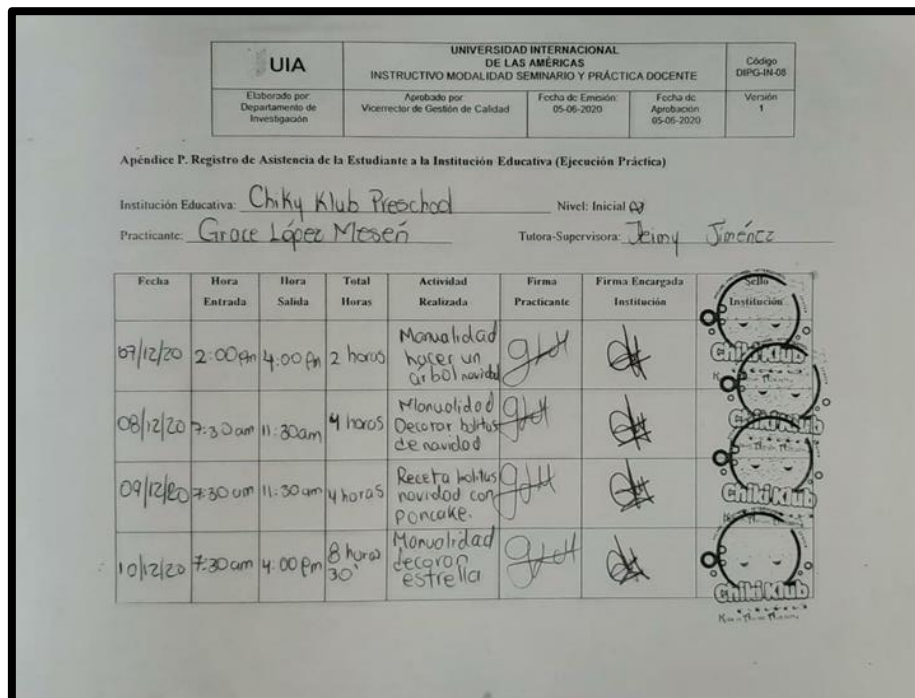 UIA
UNIVERSIDAD INTERNACIONAL
DE LAS AMÉRICAS
INSTRUCTIVO MODALIDAD SEMINARIO Y PRÁCTICA DOCENTE
Código
DIPG-IN-08
Elaborado por:
Departamento de
Investigación
Aprobado por
Vicerrector de Gestión de Calidad
Fecha de Emisión:
05-06-2020
Fecha de
Aprobación
05-06-2020
Versión
1
Apéndice P. Registro de Asistencia de la Estudiante a la Institución Educativa (Ejecución Práctica)
Institución Educativa: Chiky Klub Preschool Nivel: Inicial
Practicante: Grace López Meseń Tutora-Supervisora: Jeimy Jiménez
Fecha Hora Entrada Hora Salida Total Horas Actividad Realizada Firma Practicante Firma Encargada Institución Sello Institución
07/12/20 2:00 pm 4:00 pm 2 horas Manualidad hacer un árbol navidad
Chiki Klub
08/12/20 7:30 am 11:30am 4 horas Manualidad Decorar bolitas de navidad
Chiki Klub
09/12/20 7:30 am 11:30 am 4 horas Receta bolitas navidad con poncake.
Chiki Klub
10/12/20 7:30 am 4:00 pm 8 horas 30' Manualidad decoran estrella
Chiki Klub